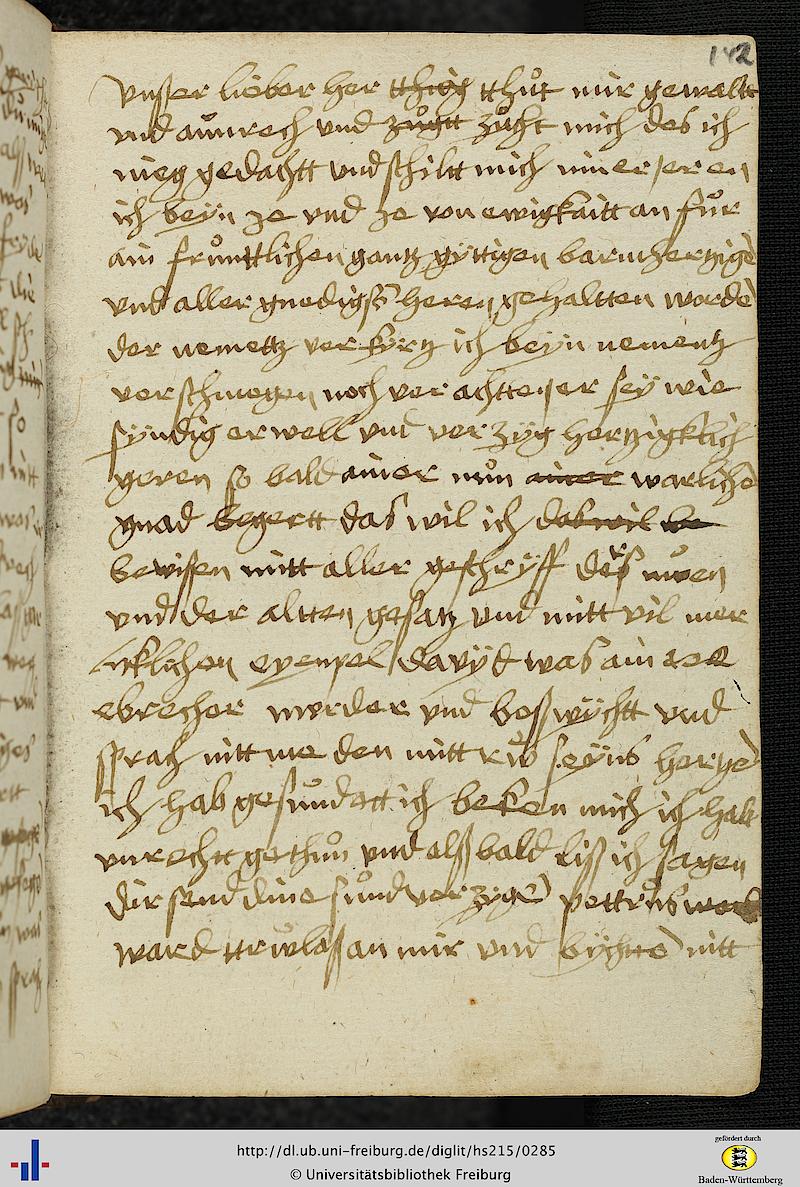 142
vnsser lieber her tthieg tthůt mir gewaltt
vnd aunrech vnd zůgtt zůcht mich des ich
nieg gedachtt vnd schiltt mich miner eren
ich beyn ze vnd ze von ewigkaitt an für
ain fründtlichen gantz gyttigen barmhertzigē
vnd aller gnedigsṡ heren gehaltten wordē
der nemettz ver kyrtz ich beyn nementz
verschmogen noch ver achtte er sey wie
syndig er well vnd ver zyg hertzigklich
geren so bald ainer nun ainer warlichē
gnad begertt das wil ich das wil be
bewisen mitt aller geschryff des nwen
vnd der altten gesatz vnd mitt vil mer
cklichen exempel davyd was ain eee
ebrecher morder vnd boßwychtt vnd
sprach nitt me den mitt rüw seyns hertzē
ich hab gesündett ich beken mich ich hab
vnrechtt gethun vnd alß bald liß ich sagen
dir send dine sünd ver zygē pettrus ward
ward ttrůwloß an mir vnd bychttē nitt
http://dl.ub.uni-freiburg.de/diglit/hs215/0285
© Universitätsbibliothek Freiburg
gefördert durch
Baden-Württemberg